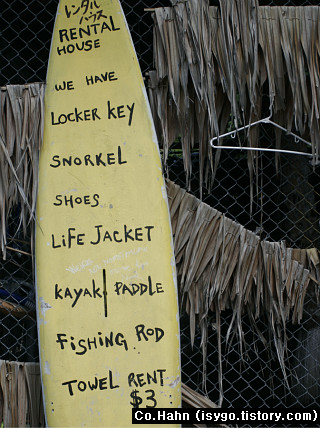 レンタル
ハウス
RENTAL
HOUSE
WE HAVE
LOCKER KEY
SNORKEL
SHOES
LiFE JACKET
KAYAK PADDLE
FiSHiNG ROD
TOWEL RENT
$3
Co.Hahn (isygo.tistory.com)